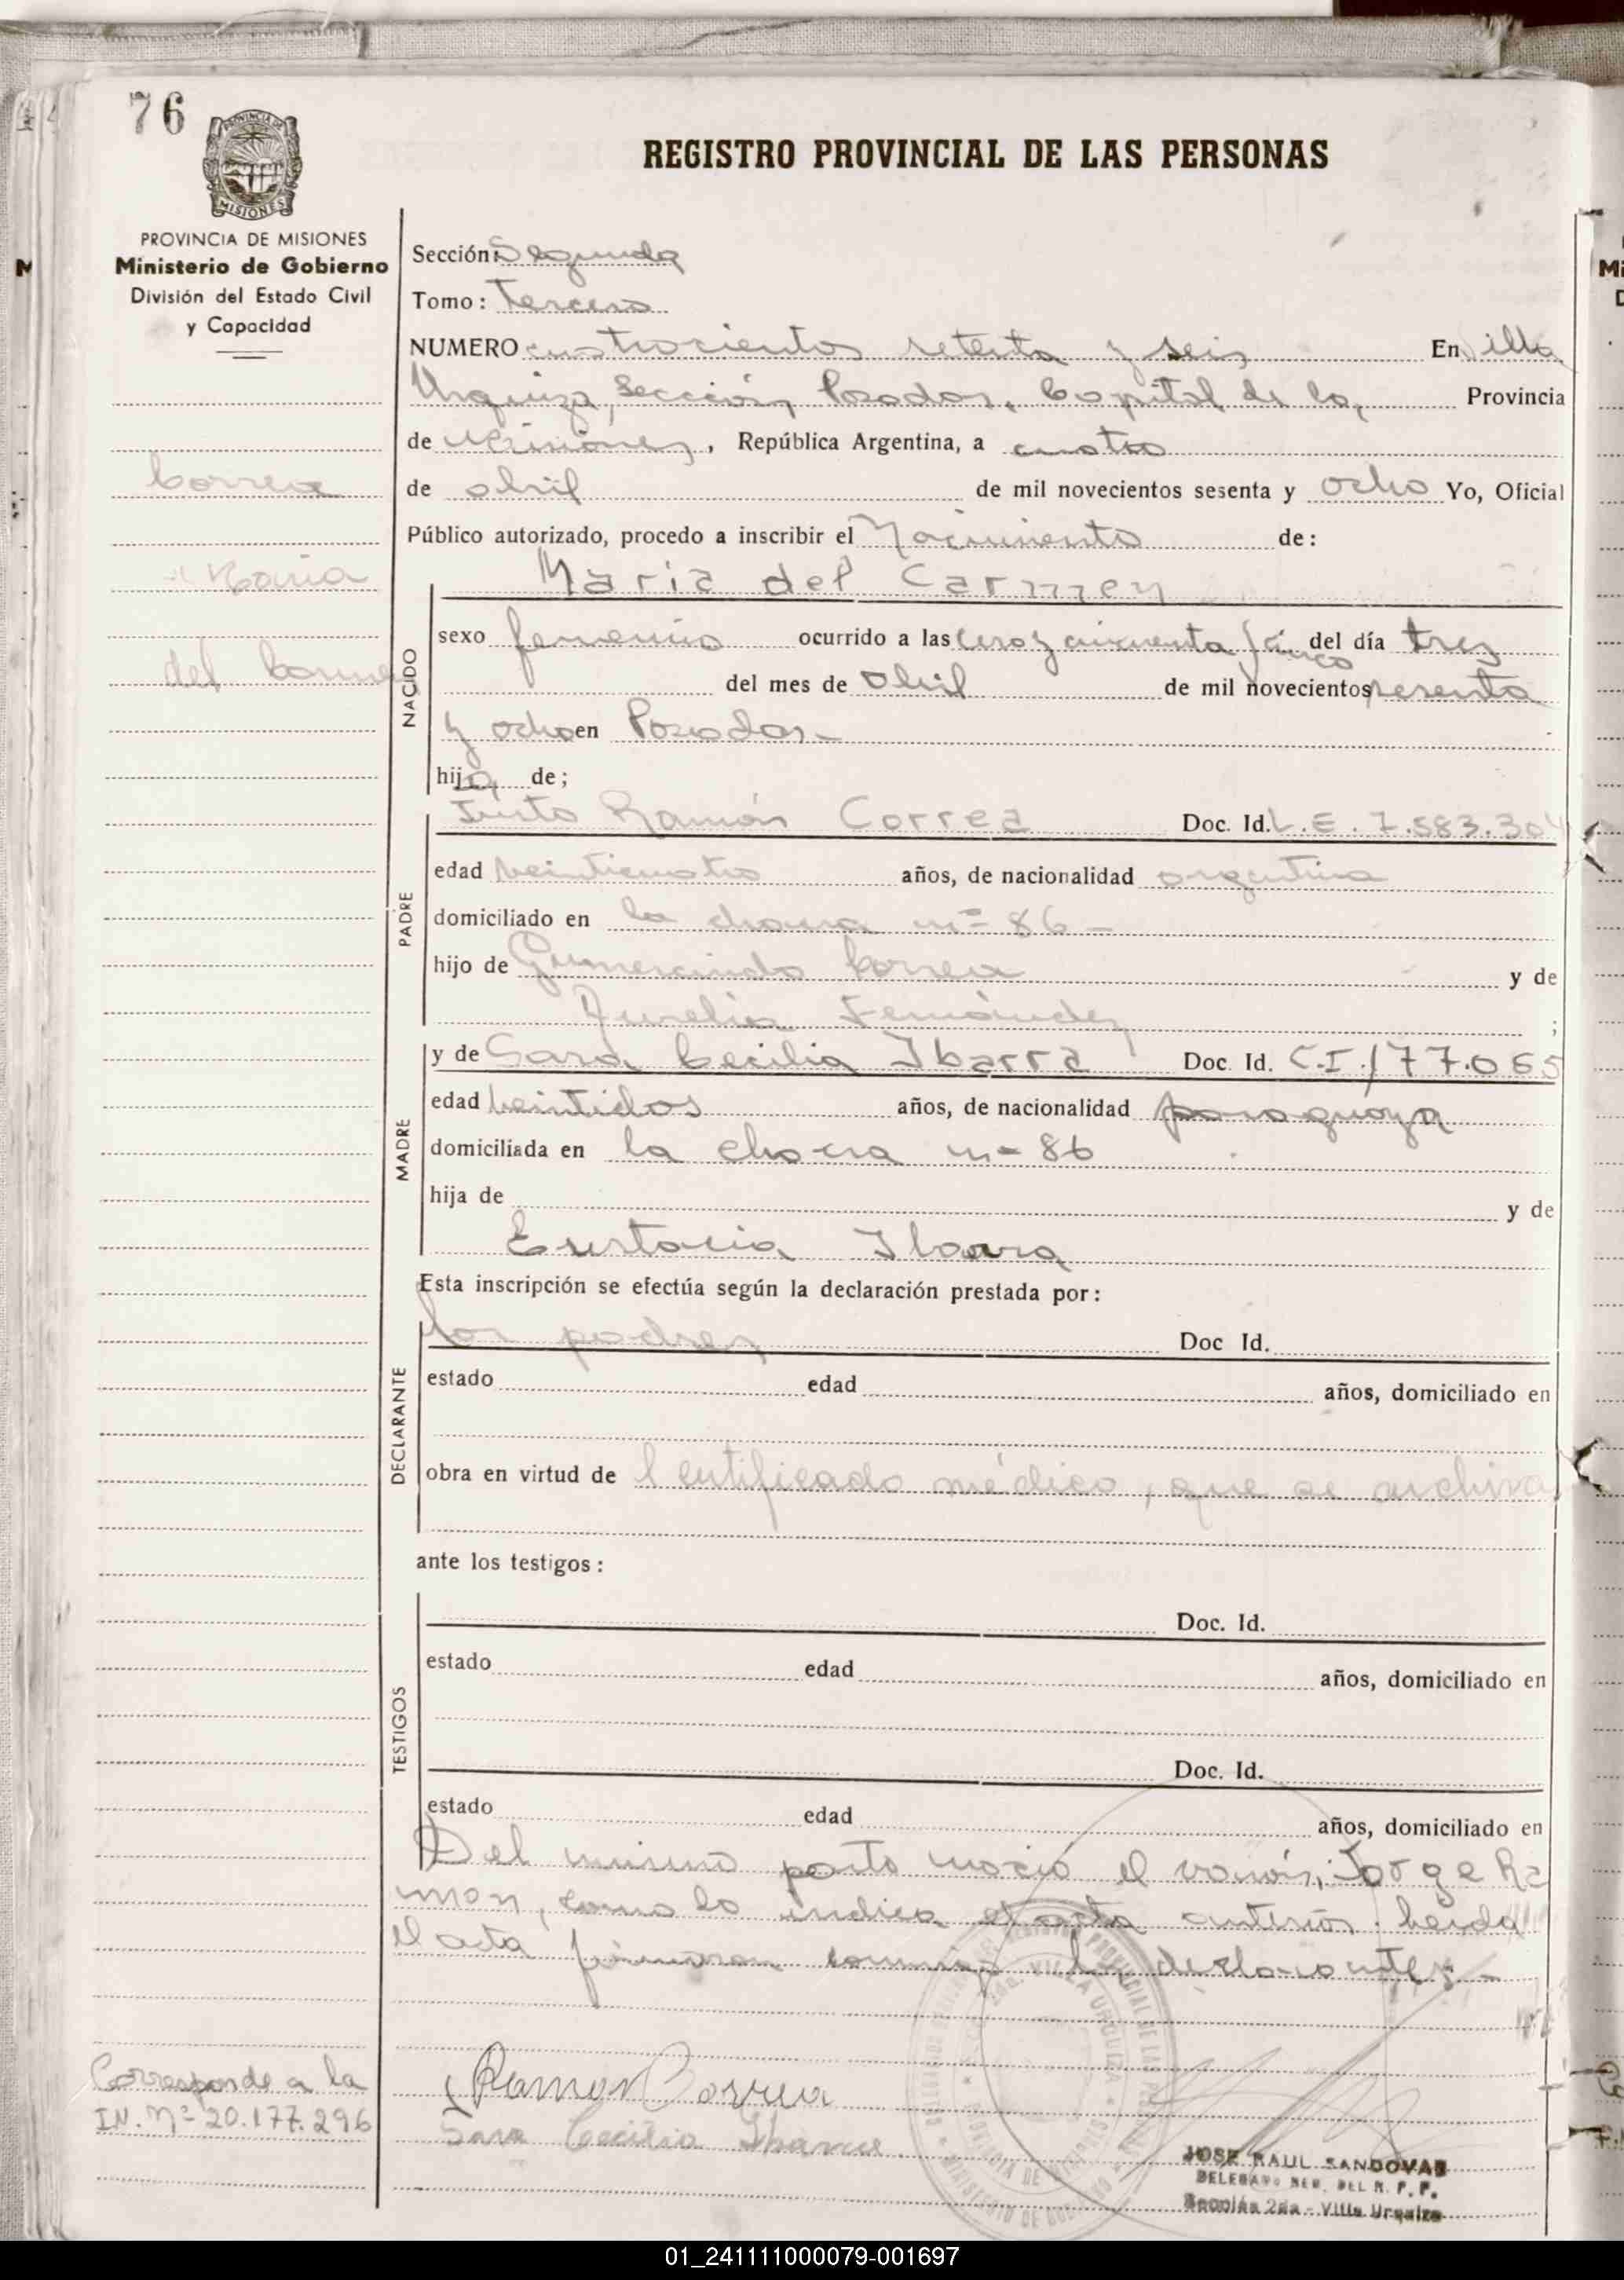 76
PROVINCIA DE
MISIONES
REGISTRO PROVINCIAL DE LAS PERSONAS
PROVINCIA DE MISIONES
Ministerio de Gobierno
División del Estado Civil
y Capacidad
Correa
María
del Carmen
Sección: Segunda
Tomo: Tercero
NUMERO cuatrocientos setenta y seis En Villa
Urquiza, Sección, Posadas, Capital de la, Provincia
de Misiones, República Argentina, a cuatro
de abril de mil novecientos sesenta y ocho Yo, Oficial
Público autorizado, procedo a inscribir el Nacimiento de:
María del Carmen
NACIDO
sexo femenino ocurrido a las cero y cincuenta y cinco del día tres
del mes de abril de mil novecientos sesenta
y ocho en Posadas.-
hija de;
PADRE
Justo Ramón Correa Doc. Id. L.E. 7.583.304
edad veinticuatro años, de nacionalidad argentina
domiciliado en la chacra nº 86 -
hijo de Gumercindo Correa y de
Aurelia Fernández ;
MADRE
y de Sara Cecilia Ibarra Doc. Id. C.I. 177.065
edad veintidos años, de nacionalidad paraguaya
domiciliada en la chacra nº 86
hija de y de
Eustacia Ibarra
Esta inscripción se efectúa según la declaración prestada por:
DECLARANTE
los padres Doc Id.
estado edad años, domiciliado en
obra en virtud de Certificado médico, que se archiva
ante los testigos:
TESTIGOS
Doc. Id.
estado edad años, domiciliado en
Doc. Id.
estado edad años, domiciliado en
Del mismo parto nació el varón, Jorge Ra
mon, como lo indica el acta anterior. Leída
el acta firmaron conmigo los declarantes.-
Corresponde a la
IN. Nº 20.177.296
Ramon Correa
Sara Cecilia Ibarra
VILLA URQUIZA
JOSE RAUL SANDOVAL
DELEGADO SEC. DEL R. P. P.
Sección 2da - Villa Urquiza
01_241111000079-001697